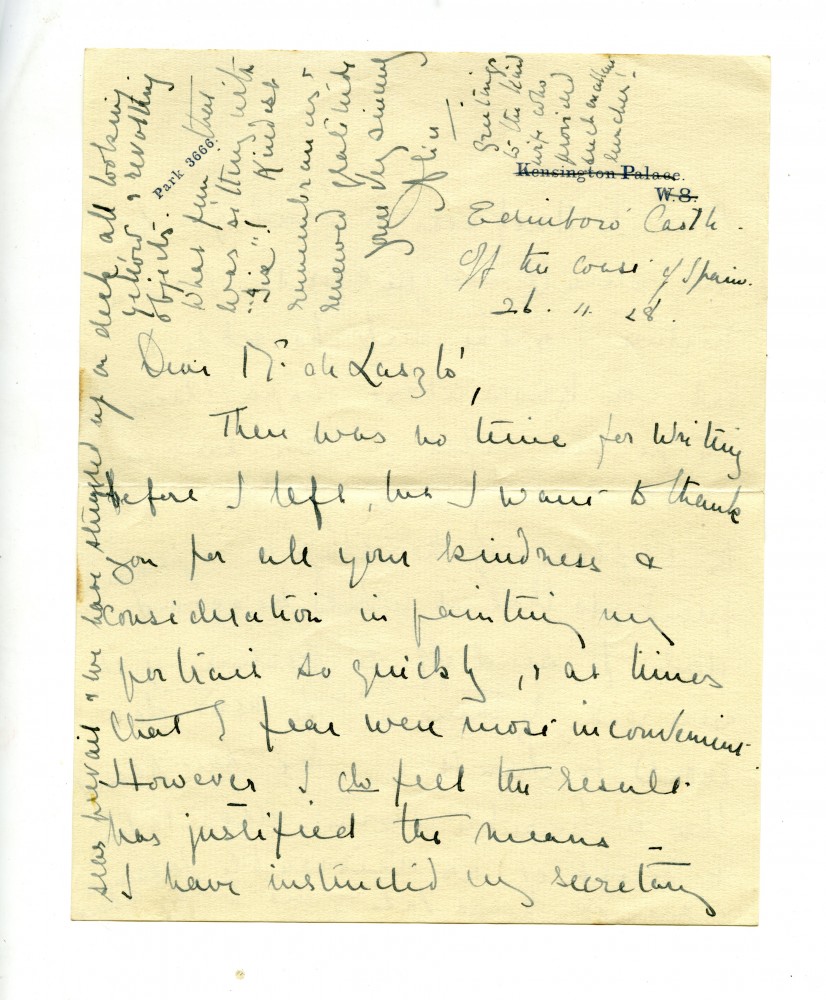 Kensington Palace.
W.8.
Park 3666.
Edinboro' Castle.
Off the coast of Spain.
26. 11. 28.
Dear Mr. de László,
There was no time for writing
before I left, but I want to thank
you for all your kindness &
consideration in painting my
portrait so quickly, & at times
that I fear were most inconvenient.
However I do feel the result
has justified the means _
I have instructed my secretary
seas prevail & we have struggled up on deck all looking
yellow & revolting
objects.
What fun that
was sitting with
"Sie"! Kindest
remembrances &
renewed gratitude
yours very sincerely
Alice _
Greetings
to the kind
wife who
provided
such excellent
lunches!